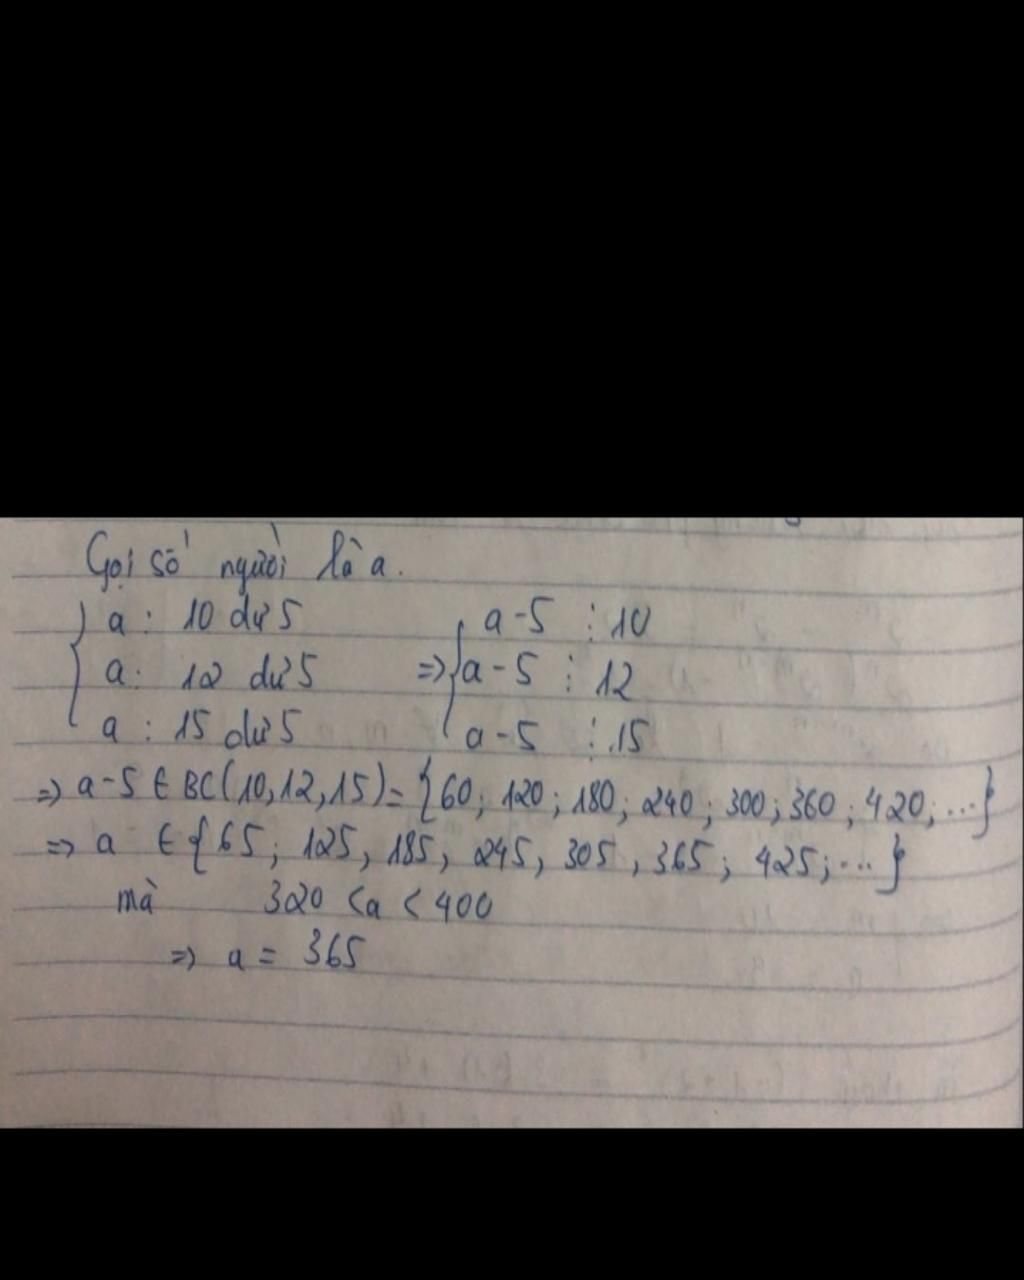 Gọi số người là a.
a : 10 dư 5 => a - 5 ⋮ 10
a : 12 dư 5 a - 5 ⋮ 12
a : 15 dư 5 a - 5 ⋮ 15
=> a - 5 ∈ BC(10,12,15) = {60; 120; 180; 240; 300; 360; 420; ...}
=> a ∈ {65; 125, 185, 245, 305, 365; 425; ...}
mà 320 < a < 400
=> a = 365